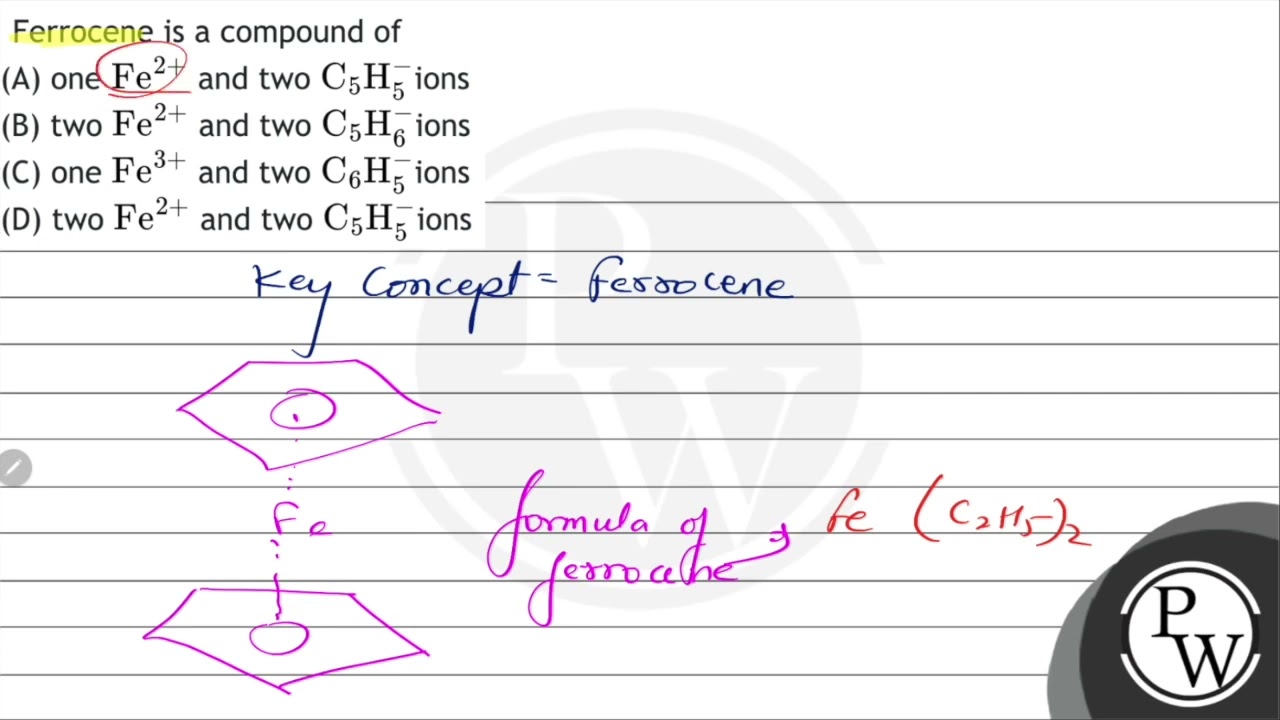 Ferrocene is a compound of
(A) one Fe²⁺ and two C₅H₅⁻ ions
(B) two Fe²⁺ and two C₅H₆⁻ ions
(C) one Fe³⁺ and two C₆H₅⁻ ions
(D) two Fe²⁺ and two C₅H₅⁻ ions
Key Concept = ferrocene
Fe
formula of ferrocene → fe (C₂H₅)₂
PW
PW